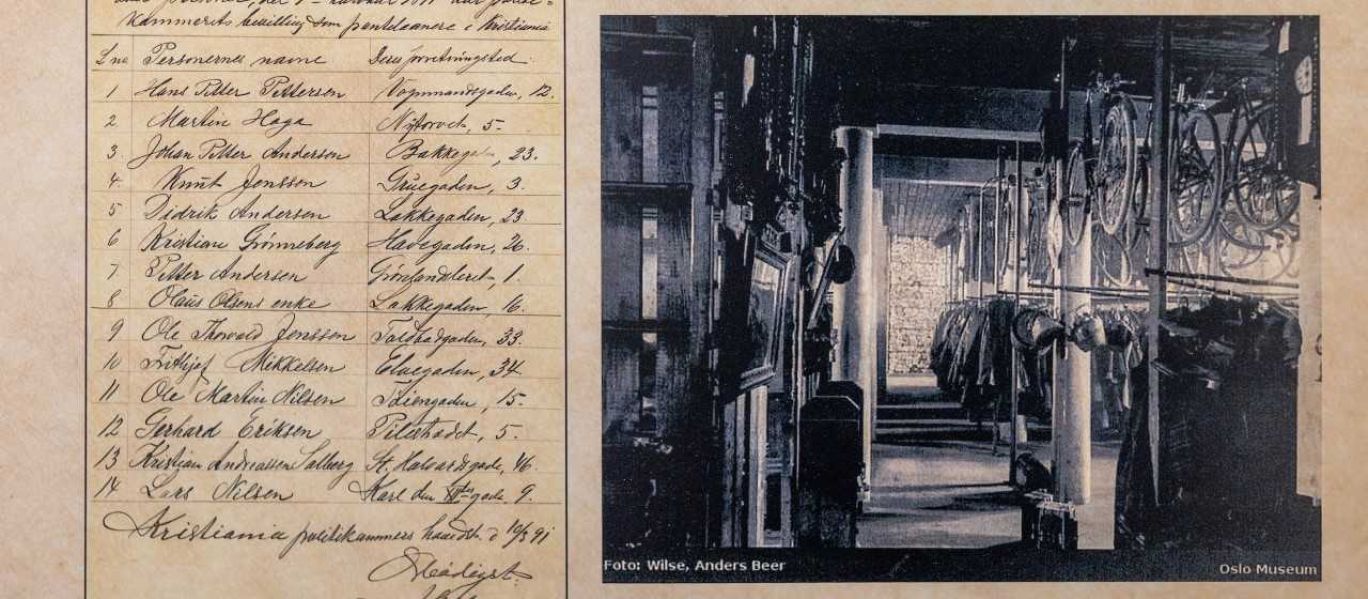 kammerets bevilling som pantelaanere i Kristiania
Lno Personernes navne Deres forretningsted
1 Hans Petter Pettersen Vognmandsgaden, 12.
2 Martin Haga Nytorvet, 5.
3. Johan Petter Andersen Bakkegaden, 23.
4. Knut Jonssen Gruegaden, 3.
5 Didrik Andersen Lakkegaden, 23
6 Kristian Grønneberg Havegaden, 26.
7 Petter Andersen Grønlandsleret, 1.
8 Olaus Olsens enke Lakkegaden, 16.
9 Ole Thorvald Jonssen gaden, 33.
10 Frithjof Mikkelsen Elvegaden, 34
11 Ole Martin Nilsen Tøiengaden, 15.
12 Gerhard Eriksen Pilestrædet, 5.
13 Kristian Andreassen Solberg St. Halvardsgade, 46.
14 Lars Nilsen Karl den XIItes gade, 9.
Kristiania politikammers 10/3 91
Foto: Wilse, Anders Beer
Oslo Museum